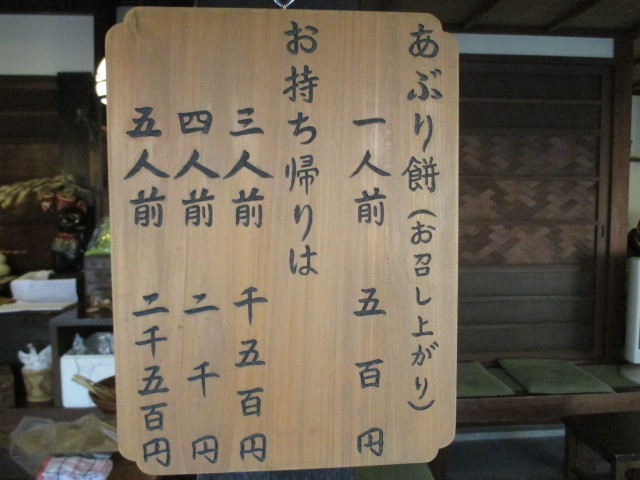 あぶり餅(お召し上がり)
一人前 五百円
お持ち帰りは
三人前 千五百円
四人前 二千円
五人前 二千五百円